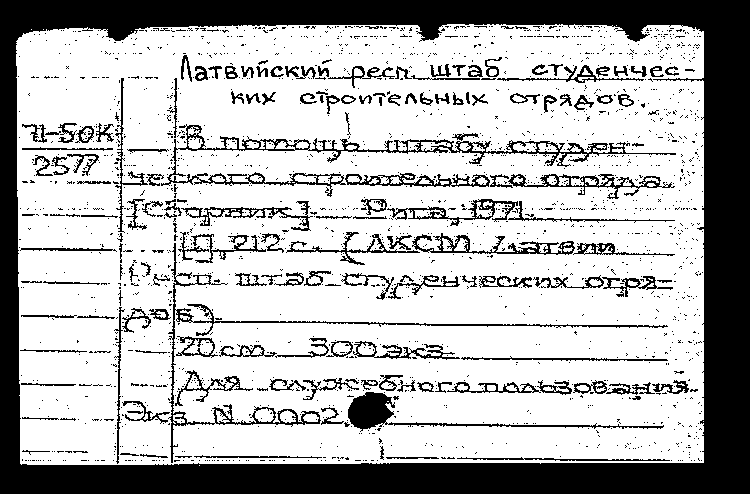 Латвийский респ. штаб студенчес-
ких строительных отрядов.
71-50К
2577
В помощь штабу студен-
ческого строительного отряда.
[Сборник]. Рига, 1971.
[1], 212 с. (ЛКСМ Латвии
Респ. штаб студенческих отря-
дов)
20 см. 300 экз.
Для служебного пользования
Экз. N 0002